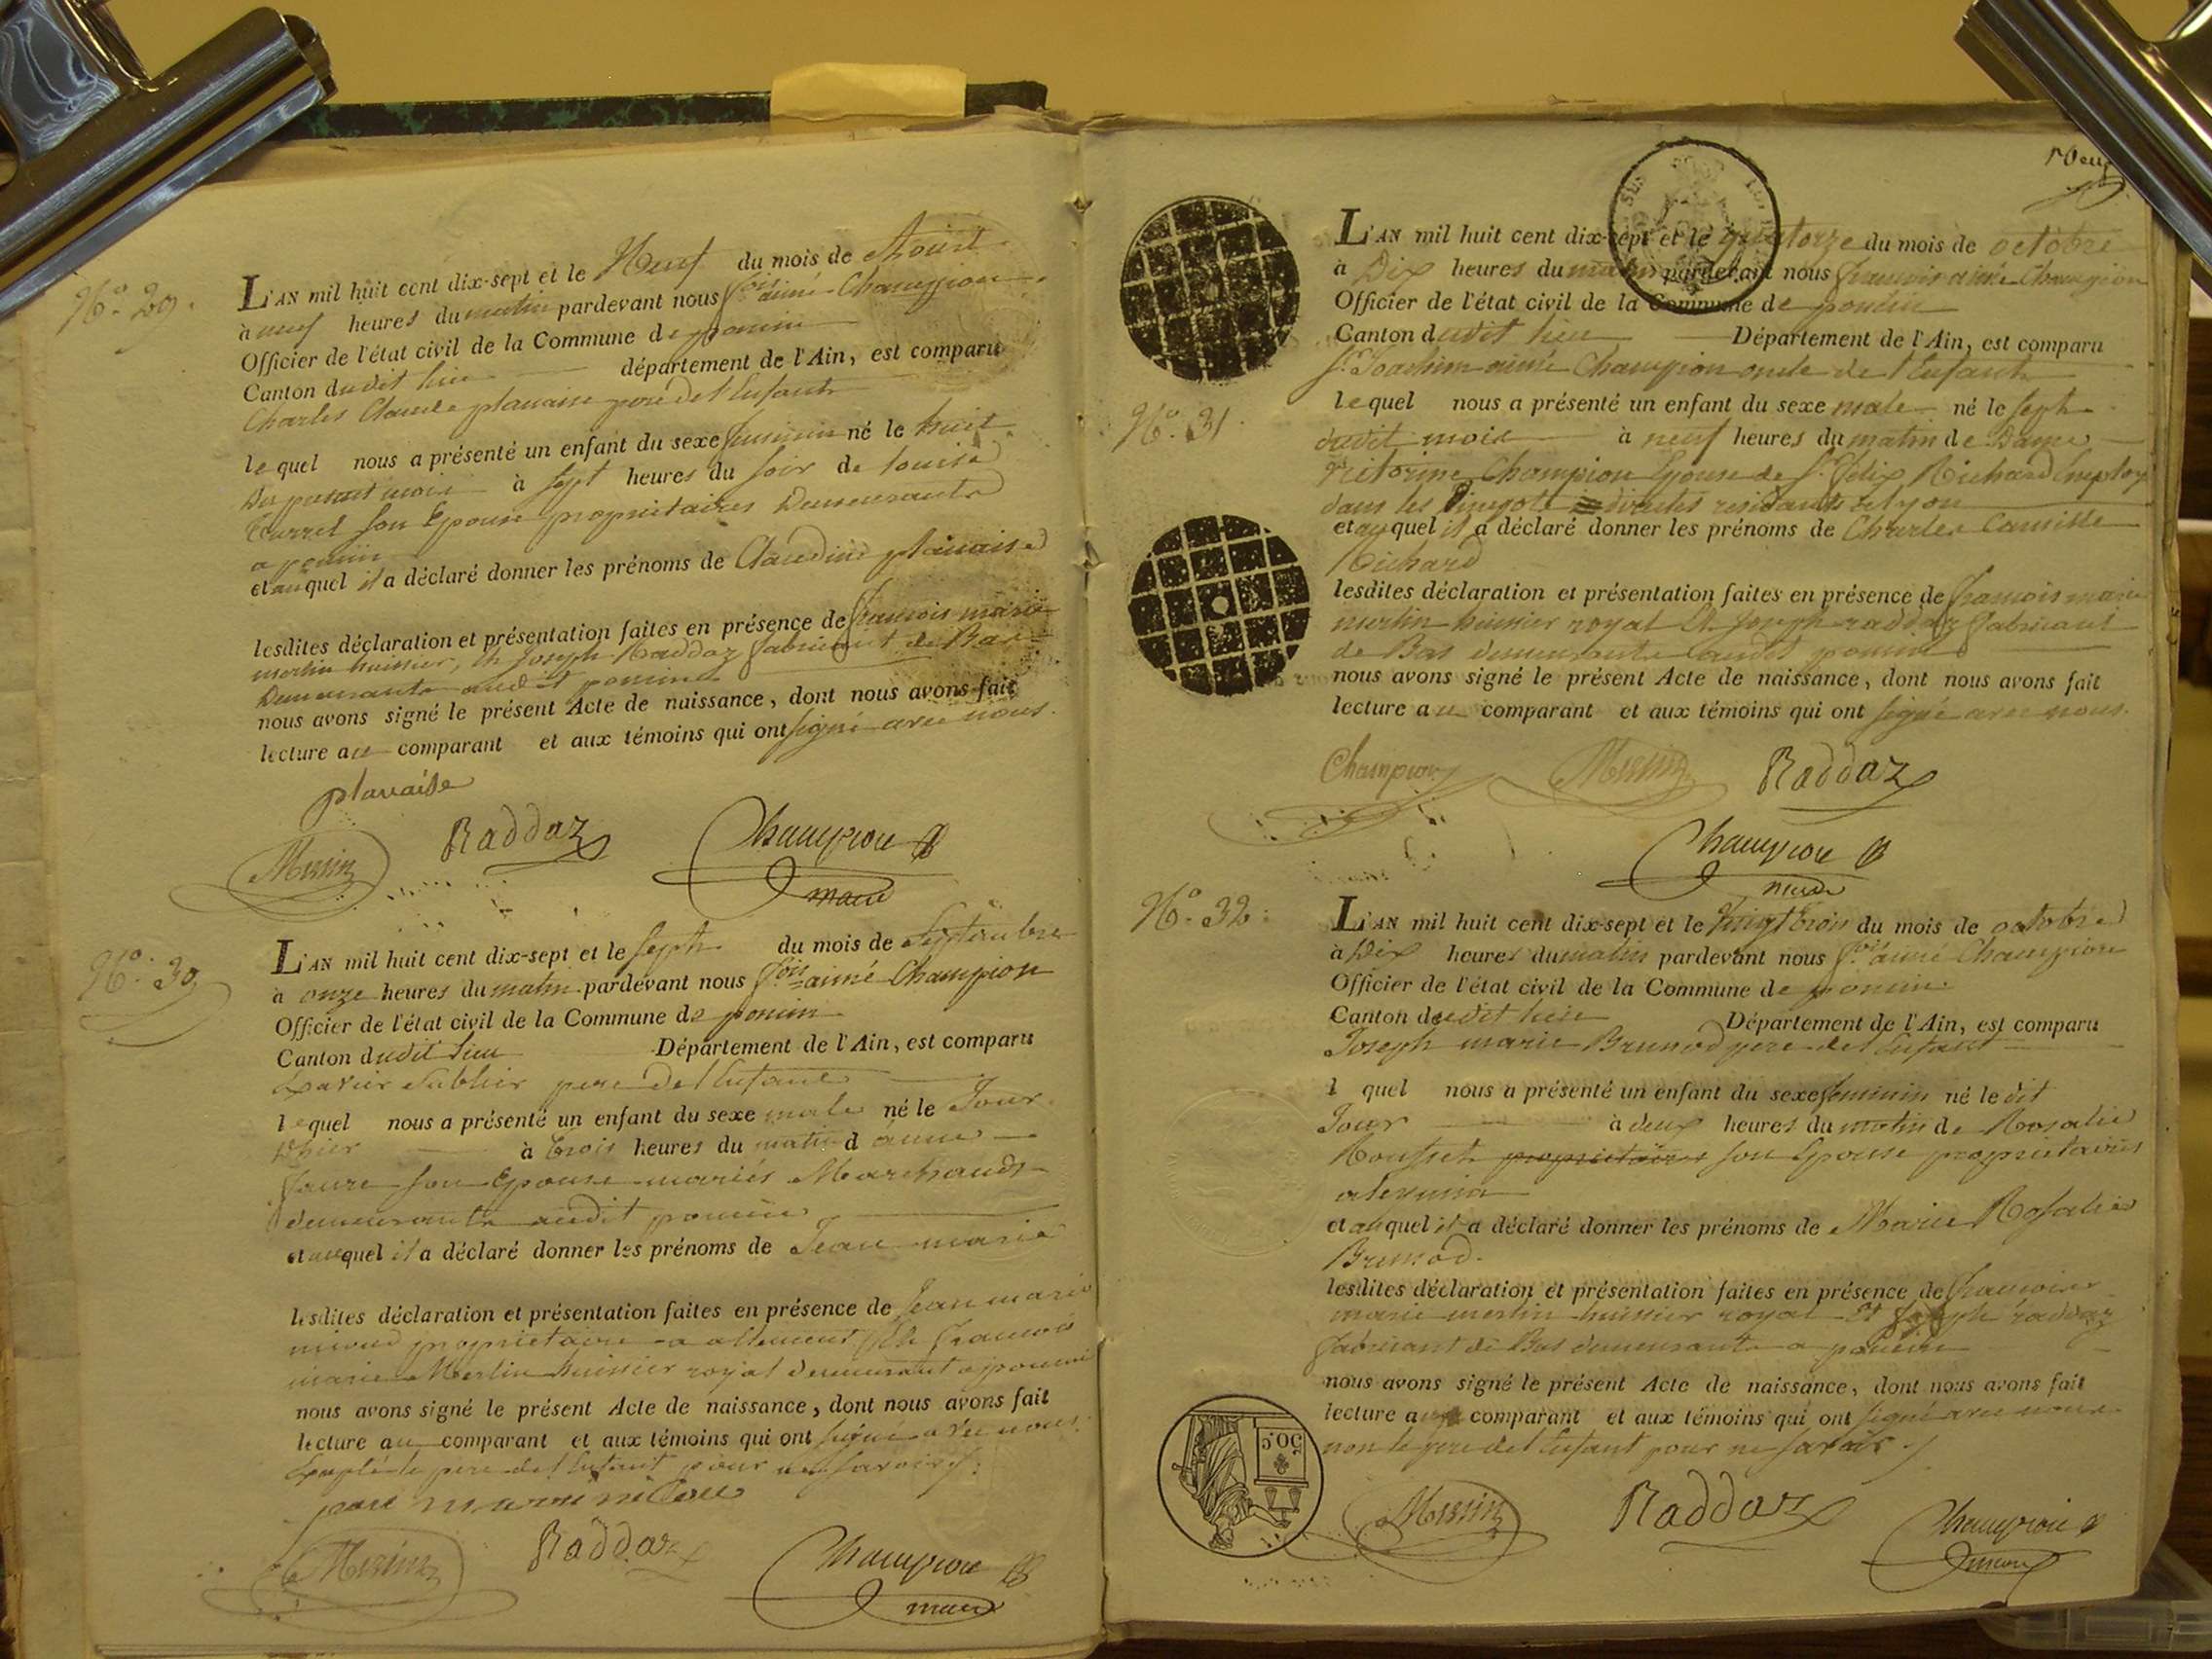 N.º 29.
L'AN mil huit cent dix-sept et le Neuf du mois de Aoust
à neuf heures du matin pardevant nous f.ois aimé Champion
Officier de l'état civil de la Commune de poncin
Canton dudit lieu département de l'Ain, est comparu
Charles Claude plavaise pere de l'Enfant
lequel nous a présenté un enfant du sexe feminin né le huit
du present mois à sept heures du soir de Louise
son Epouse proprietaires Demeurants
a poncin
et auquel il a déclaré donner les prénoms de Claudine plavaise
lesdites déclaration et présentation faites en présence de francois marie
merlin huissier, Et Joseph Raddaz fabricant de Bas
Demeurants audit poncin
nous avons signé le présent Acte de naissance, dont nous avons fait
lecture au comparant et aux témoins qui ont signé avec nous.
plavaise
Merlin Raddaz Champion
maire
N.º 30.
L'AN mil huit cent dix-sept et le sept du mois de Septembre
à onze heures du matin pardevant nous f.ois aimé Champion
Officier de l'état civil de la Commune de poncin
Canton dudit lieu Département de l'Ain, est comparu
Xavier pere de l'Enfant
lequel nous a présenté un enfant du sexe male né le Jour
d'hier à trois heures du matin d'anne
faure son Epouse mariés Marchands
demeurants audit poncin
et auquel il a déclaré donner les prénoms de Jean marie
lesdites déclaration et présentation faites en présence de Jean marie
proprietaire a allement Et francois
marie Merlin huissier royal demeurant a poncin
nous avons signé le présent Acte de naissance, dont nous avons fait
lecture au comparant et aux témoins qui ont signé avec nous.
Excepté le pere de l'Enfant pour ne savoir
Merlin Raddaz Champion
maire
L'AN mil huit cent dix-sept et le quatorze du mois de octobre
à Dix heures du matin pardevant nous francois aimé Champion
Officier de l'état civil de la Commune de poncin
Canton dudit lieu Département de l'Ain, est comparu
S.r Joachim aimé Champion oncle de l'Enfant
lequel nous a présenté un enfant du sexe male né le sept
N.º 31.
dudit mois à neuf heures du matin de Dame
Victorine Champion Epouse de S.r felix Richard Employé
dans les directes residants a Lyon
et auquel il a déclaré donner les prénoms de Charles Camille
Richard
lesdites déclaration et présentation faites en présence de francois marie
merlin huissier royal Et Joseph raddaz fabricant
de Bas demeurants audit poncin
nous avons signé le présent Acte de naissance, dont nous avons fait
lecture au comparant et aux témoins qui ont signé avec nous.
Champion Merlin Raddaz
Champion
maire
N.º 32.
L'AN mil huit cent dix-sept et le vingt trois du mois de octobre
à Dix heures du matin pardevant nous f.ois aimé Champion
Officier de l'état civil de la Commune de poncin
Canton dudit lieu Département de l'Ain, est comparu
Joseph marie Brunod pere de l'Enfant
l quel nous a présenté un enfant du sexe feminin né le dit
Jour à deux heures du matin de Rosalie
Rousset proprietaires son Epouse proprietaires
et auquel il a déclaré donner les prénoms de Marie Rosalie
Brunod.
lesdites déclaration et présentation faites en présence de francois
marie merlin huissier royal Et Joseph raddaz
fabricant de Bas demeurants a poncin
nous avons signé le présent Acte de naissance, dont nous avons fait
lecture au comparant et aux témoins qui ont signé avec nous
non le pere de l'Enfant pour ne savoir
50.c
Merlin Raddaz Champion
maire